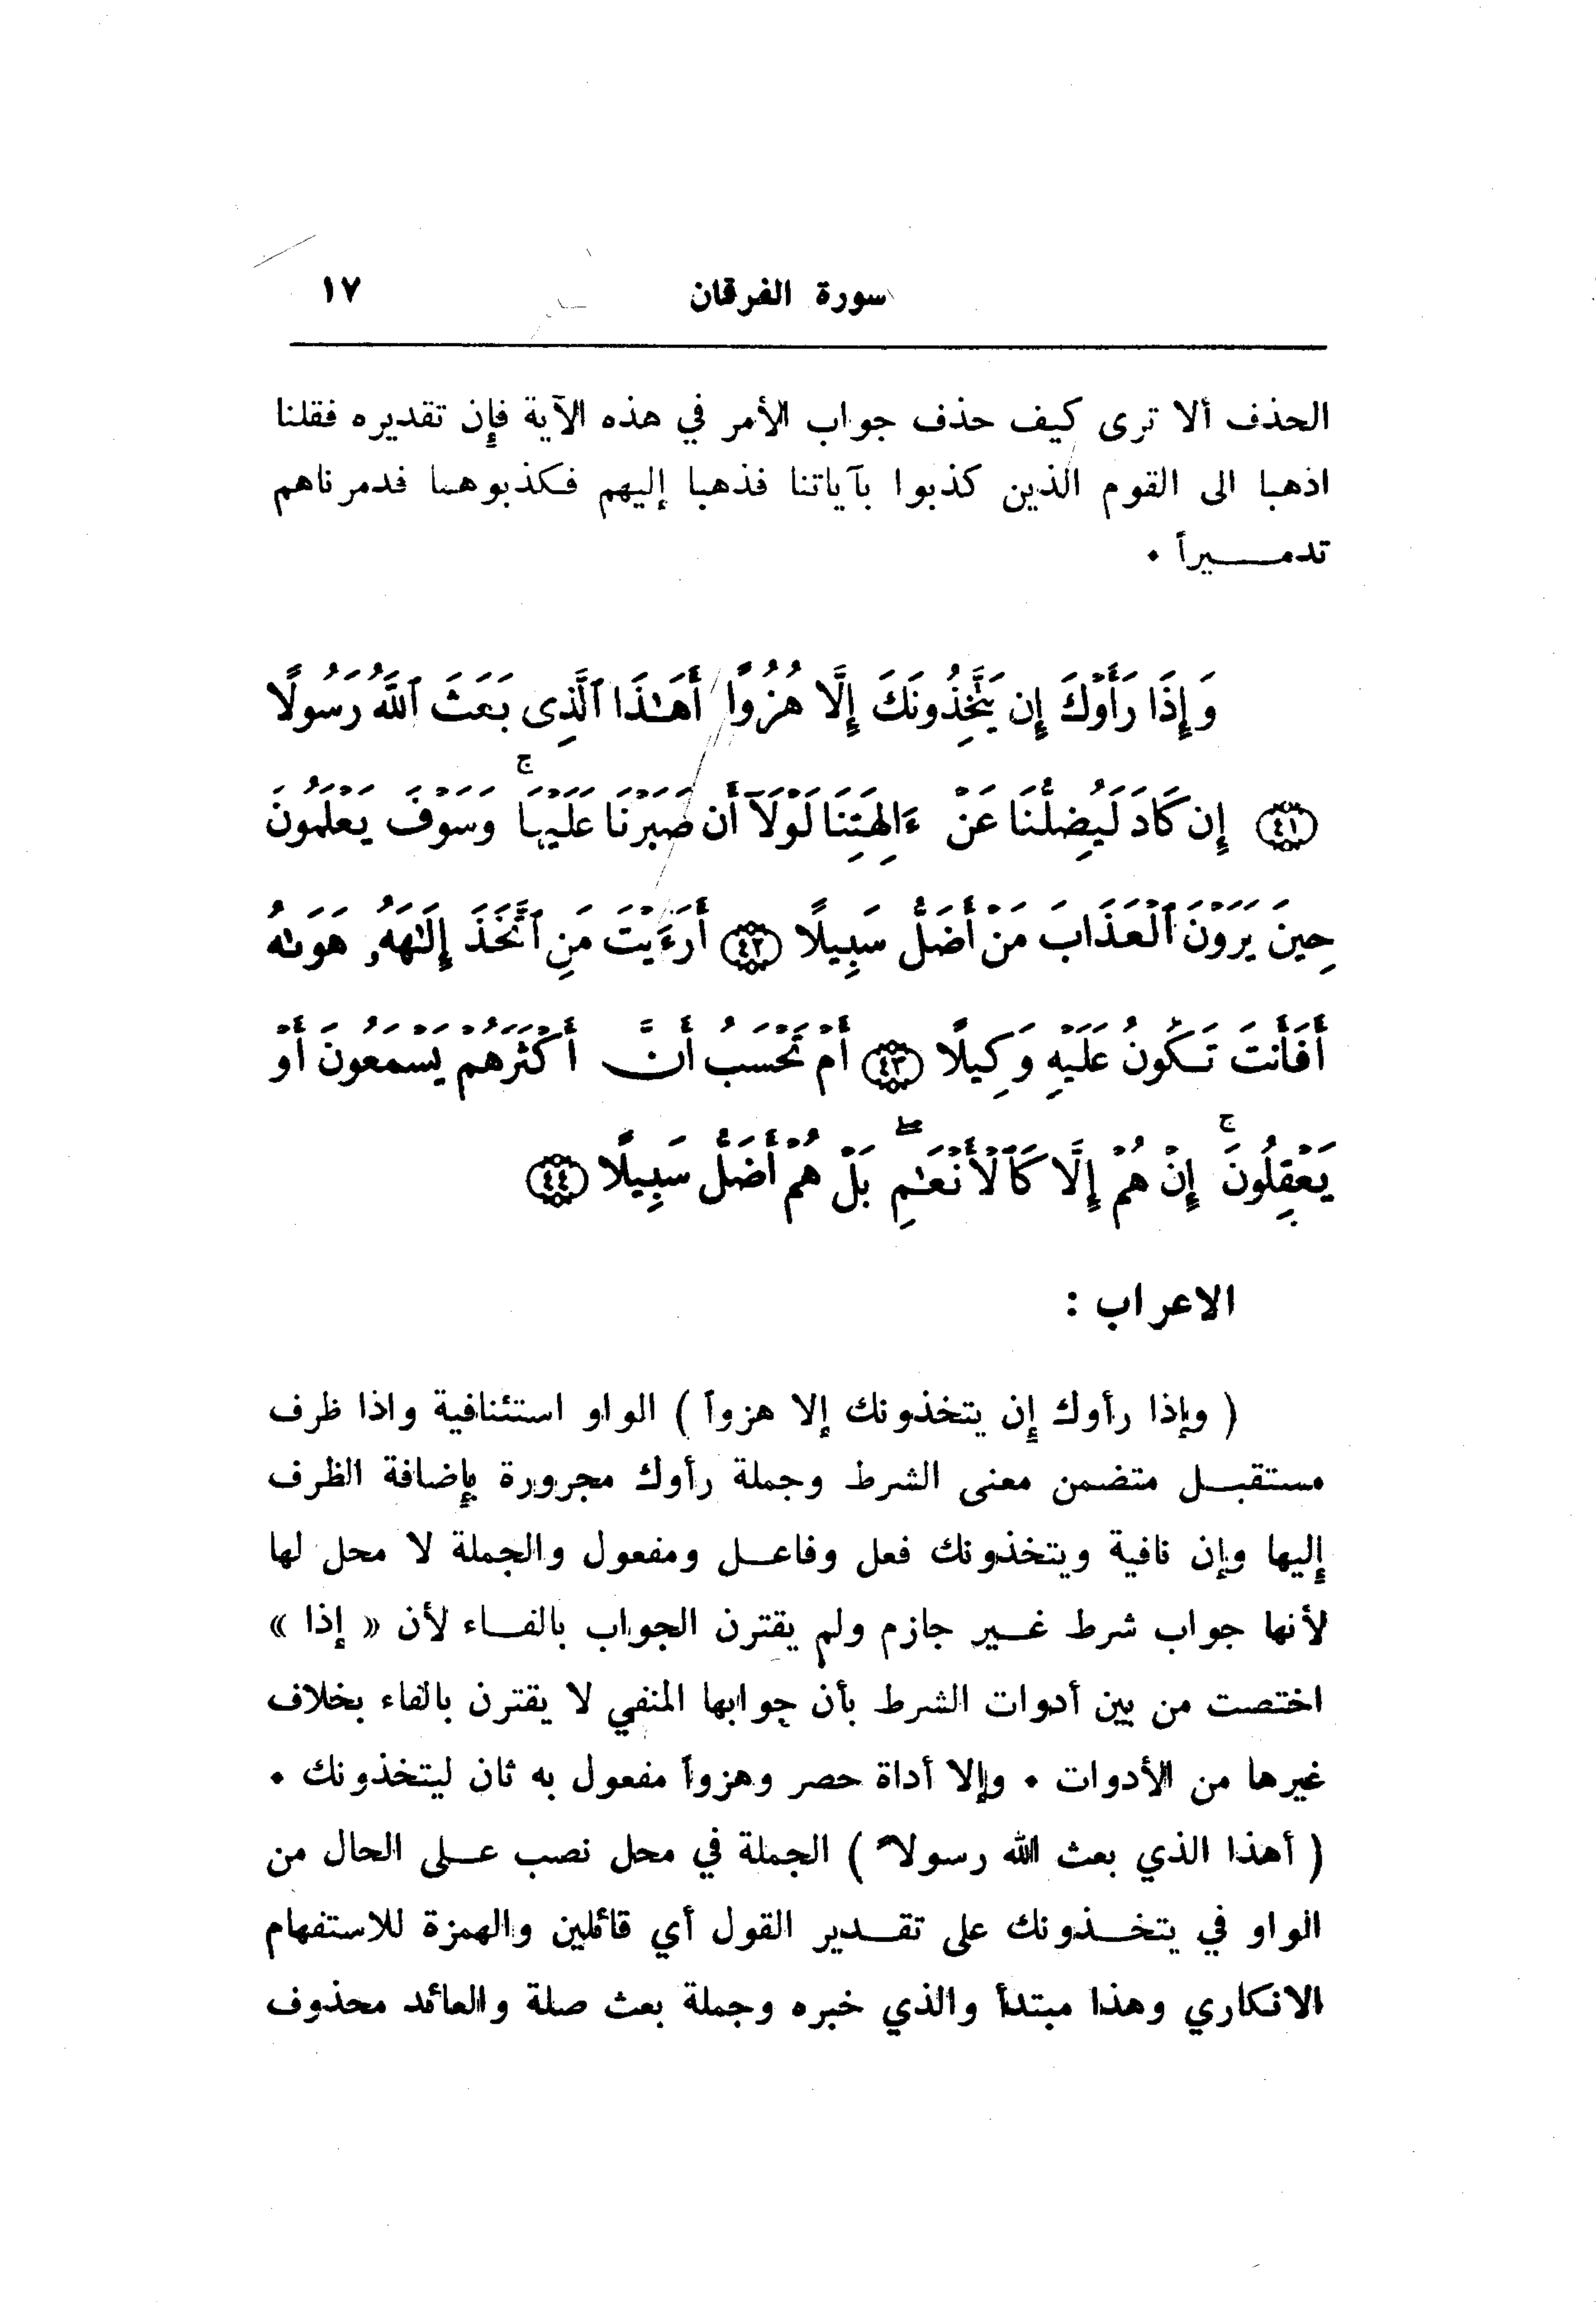 سورة الفرقان ١٧
الحذف ألا ترى كيف حذف جواب الأمر في هذه الآية فإن تقديره فقلنا
اذهبا الى القوم الذين كذبوا بآياتنا فذهبا إليهم فكذبوهما فدمرناهم
تدميراً ٠
وَإِذَا رَأَوْكَ إِن يَتَّخِذُونَكَ إِلَّا هُزُوًا أَهَٰذَا ٱلَّذِى بَعَثَ ٱللَّهُ رَسُولًا
٤١ إِن كَادَ لَيُضِلُّنَا عَنْ ءَالِهَتِنَا لَوْلَآ أَن صَبَرْنَا عَلَيْهَا ۚ وَسَوْفَ يَعْلَمُونَ
حِينَ يَرَوْنَ ٱلْعَذَابَ مَنْ أَضَلُّ سَبِيلًا ٤٢ أَرَءَيْتَ مَنِ ٱتَّخَذَ إِلَٰهَهُۥ هَوَىٰهُ
أَفَأَنتَ تَكُونُ عَلَيْهِ وَكِيلًا ٤٣ أَمْ تَحْسَبُ أَنَّ أَكْثَرَهُمْ يَسْمَعُونَ أَوْ
يَعْقِلُونَ ۚ إِنْ هُمْ إِلَّا كَٱلْأَنْعَٰمِ ۖ بَلْ هُمْ أَضَلُّ سَبِيلًا ٤٤
الاعراب :
( وإذا رأوك إن يتخذونك إلا هزواً ) الواو استئنافية واذا ظرف
مستقبل متضمن معنى الشرط وجملة رأوك مجرورة بإضافة الظرف
إليها وإن نافية ويتخذونك فعل وفاعل ومفعول والجملة لا محل لها
لأنها جواب شرط غير جازم ولم يقترن الجواب بالفاء لأن « إذا »
اختصت من بين أدوات الشرط بأن جوابها المنفي لا يقترن بالفاء بخلاف
غيرها من الأدوات ٠ وإلا أداة حصر وهزواً مفعول به ثان ليتخذونك ٠
( أهذا الذي بعث الله رسولاً ) الجملة في محل نصب على الحال من
الواو في يتخذونك على تقدير القول أي قائلين والهمزة للاستفهام
الانكاري وهذا مبتدأ والذي خبره وجملة بعث صلة والعائد محذوف